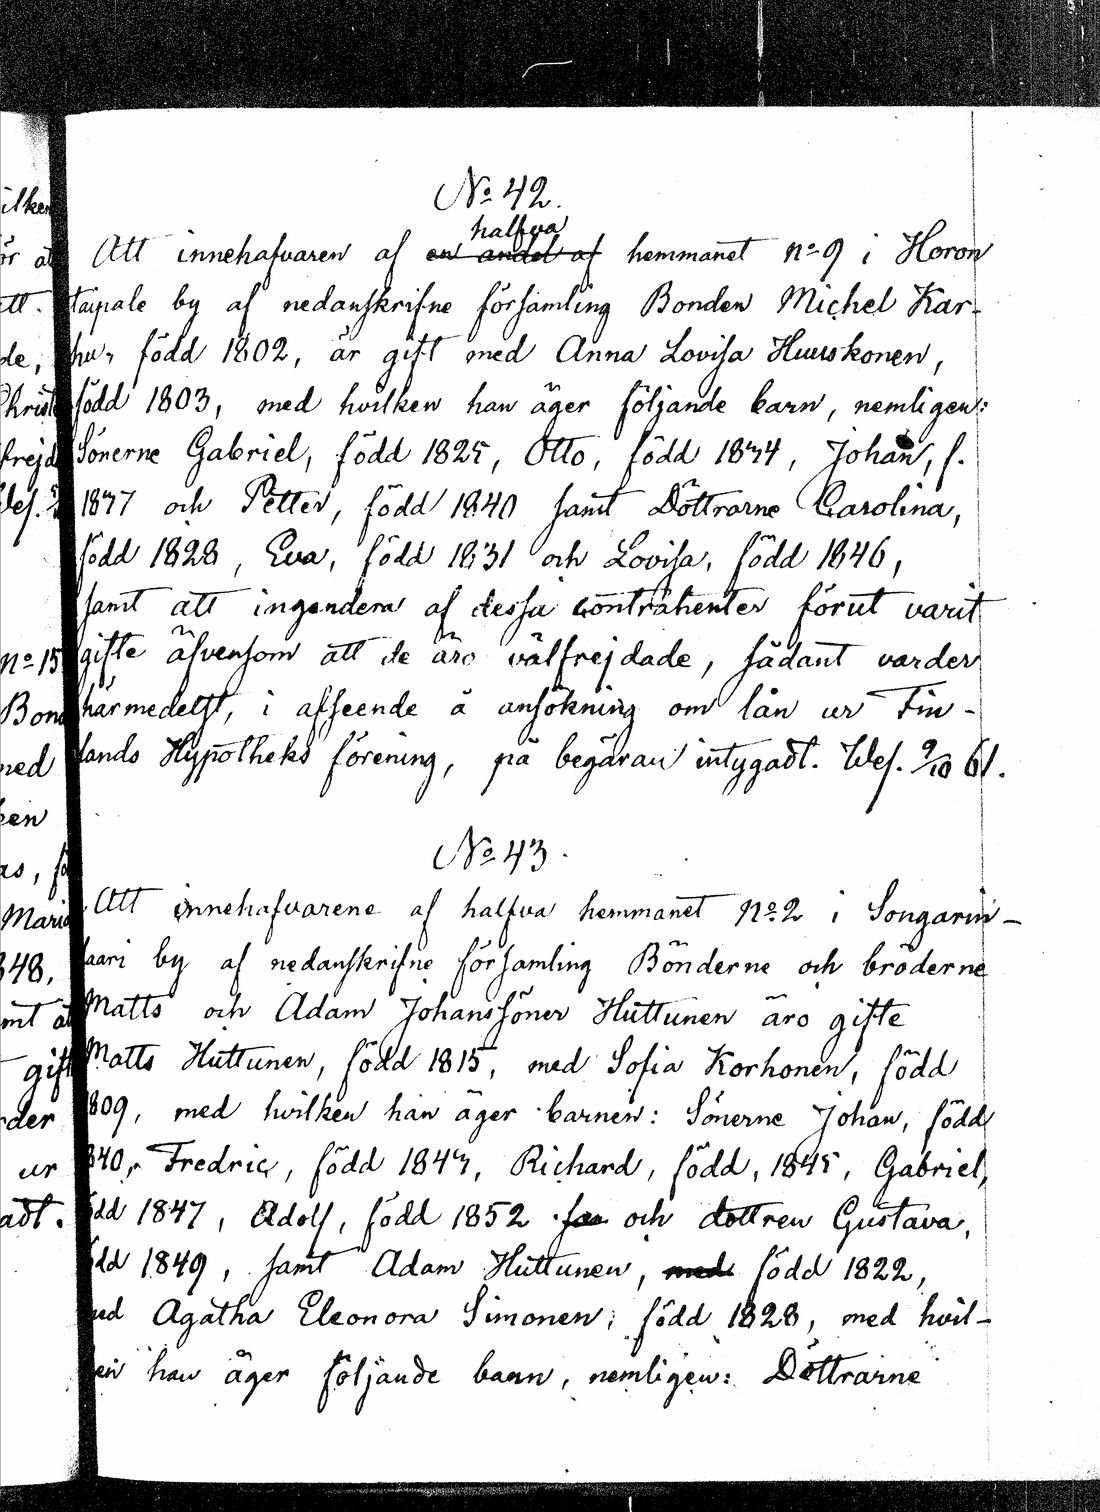 No 42.
halfva
Att innehafvaren af en andel af hemmanet no 9 i Horon
taipale by af nedanskrifne församling Bonden Michel Kar-
hu, född 1802, är gift med Anna Lovisa Huuskonen,
född 1803, med hvilken han äger följande barn, nemligen:
Sönerne Gabriel, född 1825, Otto, född 1834, Johan, f.
1837 och Petter, född 1840 samt Döttrarne Carolina,
född 1828, Eva, född 1831 och Lovisa, född 1846,
samt att ingendera af dessa contrahenter förut varit
gifte äfvensom att de äro välfrejdade, sådant varder
härmedelst, i afseende å ansökning om lån ur Fin-
lands Hypotheks förening, på begäran intygadt. Wes. 9/10 61.
No 43.
Att innehafvarene af halfva hemmanet No 2 i Songarin-
saari by af nedanskrifne församling Bönderne och bröderne
Matts och Adam Johanssöner Huttunen äro gifte
Matts Huttunen, född 1815, med Sofia Korhonen, född
1809, med hvilken han äger barnen: Sönerne Johan, född
1840, Fredric, född 1843, Richard, född, 1845, Gabriel,
född 1847, Adolf, född 1852 och dottren Gustava,
född 1849, samt Adam Huttunen, med född 1822,
med Agatha Eleonora Simonen, född 1828, med hvil-
ken han äger följande barn, nemligen: Döttrarne